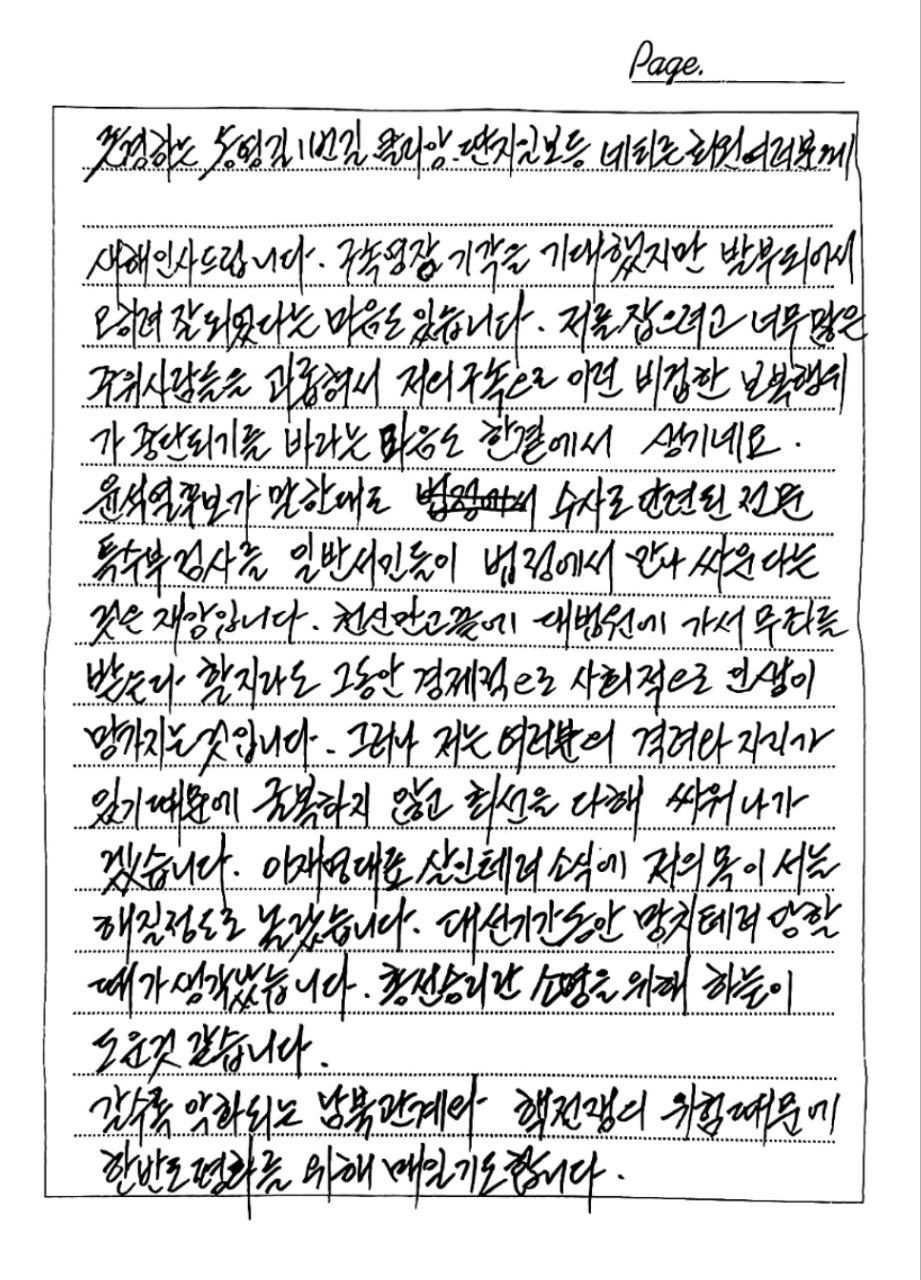 Page.
존경하는 송영길 11번길 클리앙.딴지일보등 네티즌 회원여러분께
새해인사드립니다. 구속영장 기각을 기대했지만 발부되어서
오히려 잘되었다는 마음도 있습니다. 저를 잡으려고 너무많은
주위사람들을 괴롭혀서 저의구속으로 이런 비겁한 보복행위
가 중단되기를 바라는 마음도 한켠에서 생기네요.
윤석열후보가 말한대로 수사로 단련된 전문
특수부검사를 일반서민들이 법정에서 만나 싸운다는
것은 재앙입니다. 천신만고끝에 대법원에 가서 무죄를
받는다 할지라도 그동안 경제적으로 사회적으로 인생이
망가지는것입니다. 그러나 저는 여러분의 격려와 지지가
있기때문에 굴복하지 않고 최선을 다해 싸워나가
겠습니다. 이재명대표 살인테러소식에 저의목이 서늘
해질정도로 놀랐습니다. 대선기간동안 망치테러 당할
때가 생각났습니다. 총선승리란 소명을 위해 하늘이
도운것 같습니다.
갈수록 악화되는 남북관계와 핵전쟁의 위험때문에
한반도평화를 위해 매일기도합니다.